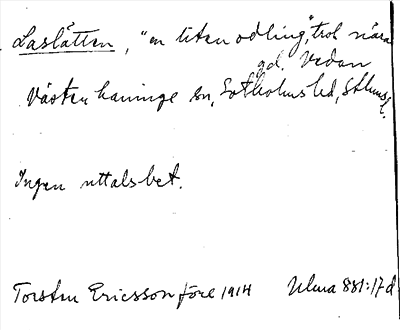 Laslätten, "en liten odling", trol nära
gd. Vedan
Västerhaninge sn, Sotholms hd, Sthlms l.
Ingen uttalsbet.
Torsten Ericsson före 1914 Ulma 881:17 d